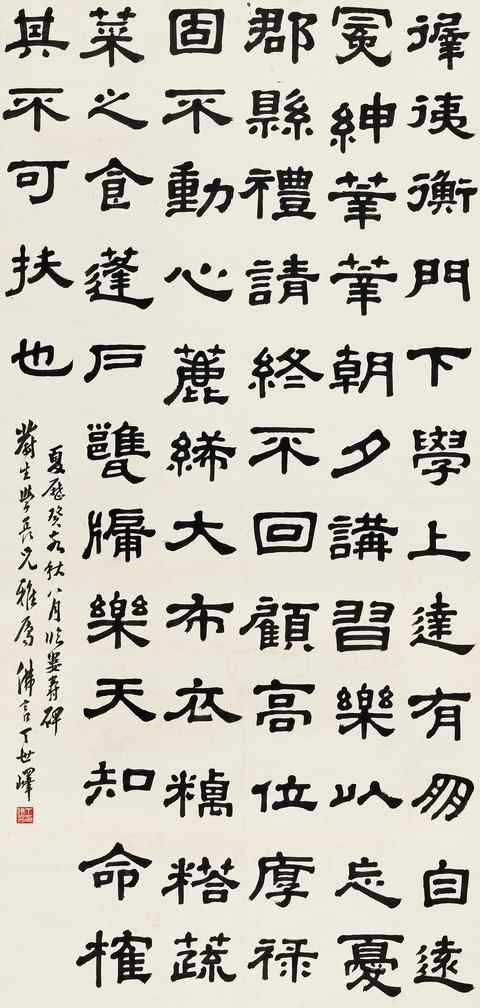 徲𢓡衡門下學上達有朋自遠
冕紳莘莘朝夕講習樂以忘憂
郡縣禮請終不回顧高位厚祿
固不動心麤絺大布衣糲荅蔬
菜之食蓬戶甕牖樂天知命榷
其不可扶也
夏歷癸亥秋八月臨婁壽碑
蔚生學長兄雅屬 佛言丁世嶧